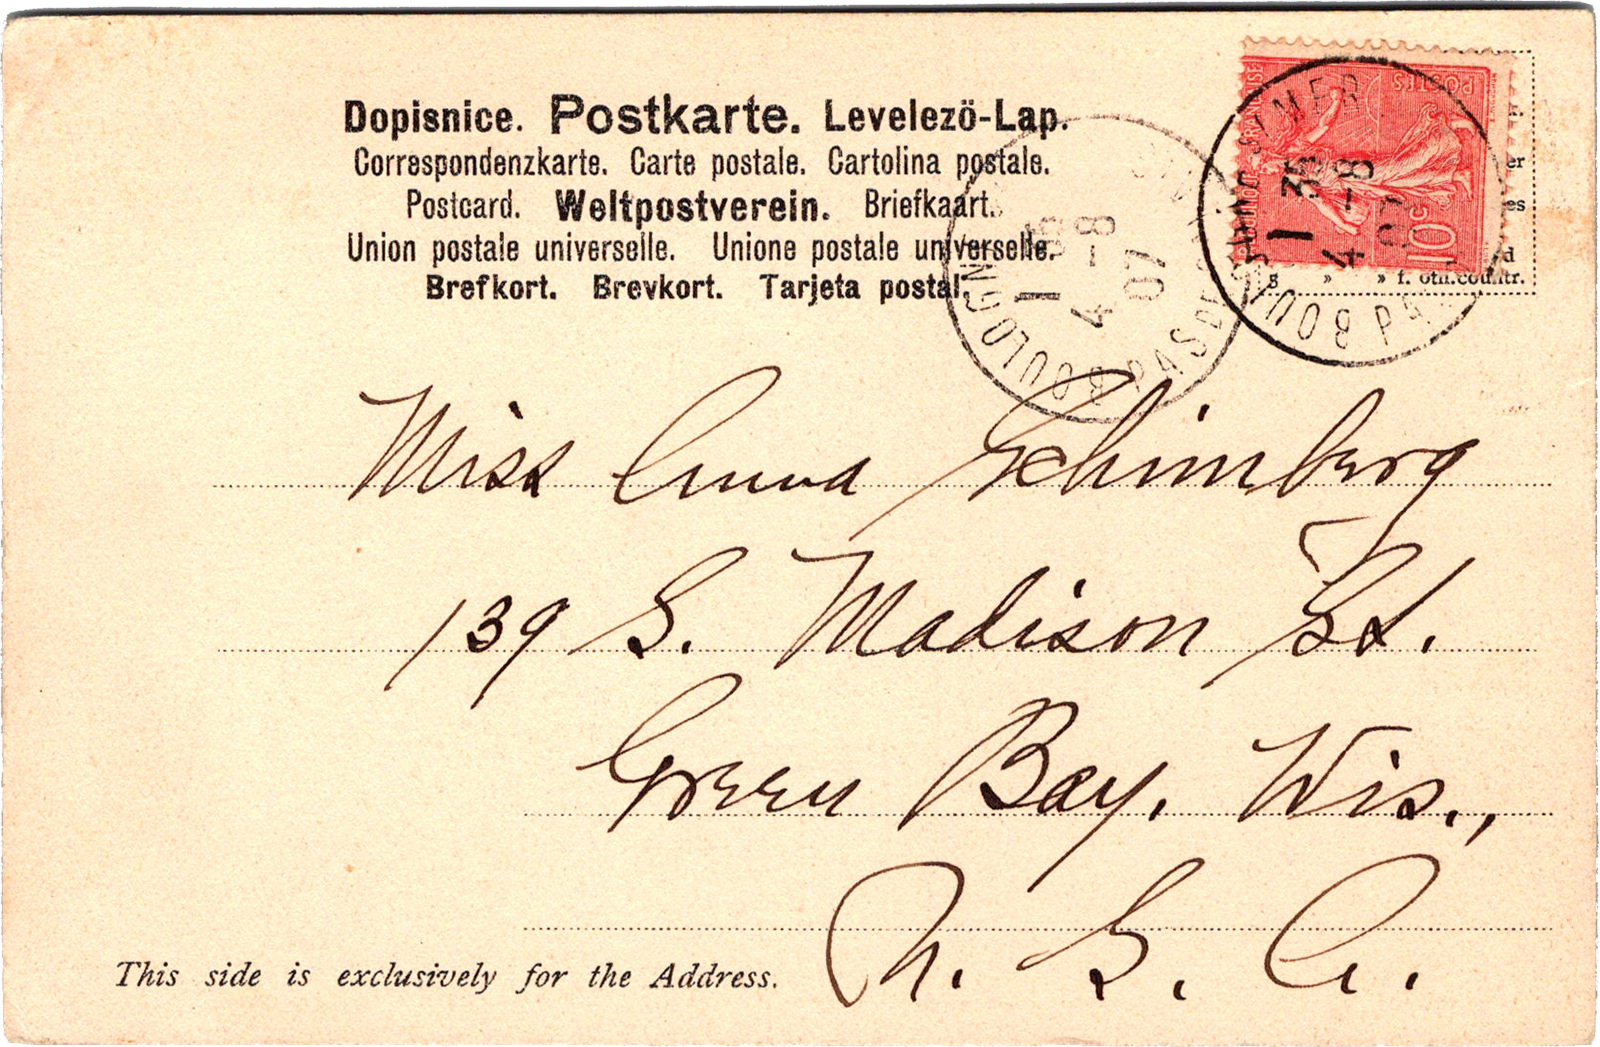 Dopisnice. Postkarte. Levelezö-Lap.
Correspondenzkarte. Carte postale. Cartolina postale.
Postcard. Weltpostverein. Briefkaart.
Union postale universelle. Unione postale universelle.
Brefkort. Brevkort. Tarjeta postal.
POSTES
10c
BOULOGNE S/MER
1 35
4-8
07
PAS DE
BOULOGNE S/MER
1 35
4-8
07
er
es
d
s » » f. oth. countr.
Miss Anna Schimberg
139 S. Madison St.
Green Bay. Wis.,
U. S. A.
This side is exclusively for the Address.